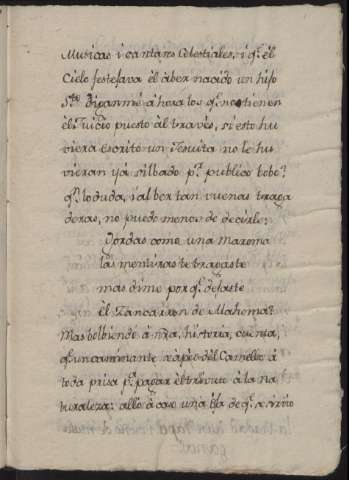 Musicas i cantares Celestiales, i q.e el
Cielo festejava el aber nacido un hijo
S.to diganme ahora los q.e no tienen
el Juicio puesto al través, si esto hu
viera escrito un Jesuita no le hu
vieran yá silbado p.r publico bobo?
q.n lo duda, i al ber tan vuenas traga
deras, no puedo menos de decirle:
Gordas como una maroma
las mentiras te tragaste
mas dime por q.e dejaste
el Zancarron de Mahoma?
Mas bolbiendo á n̄ra, historia, cuenta,
q.e un caminante se apeó del Camello á
toda prisa p.a pagar el tributo á la na
turaleza; alló á caso una de q.e se sirvio